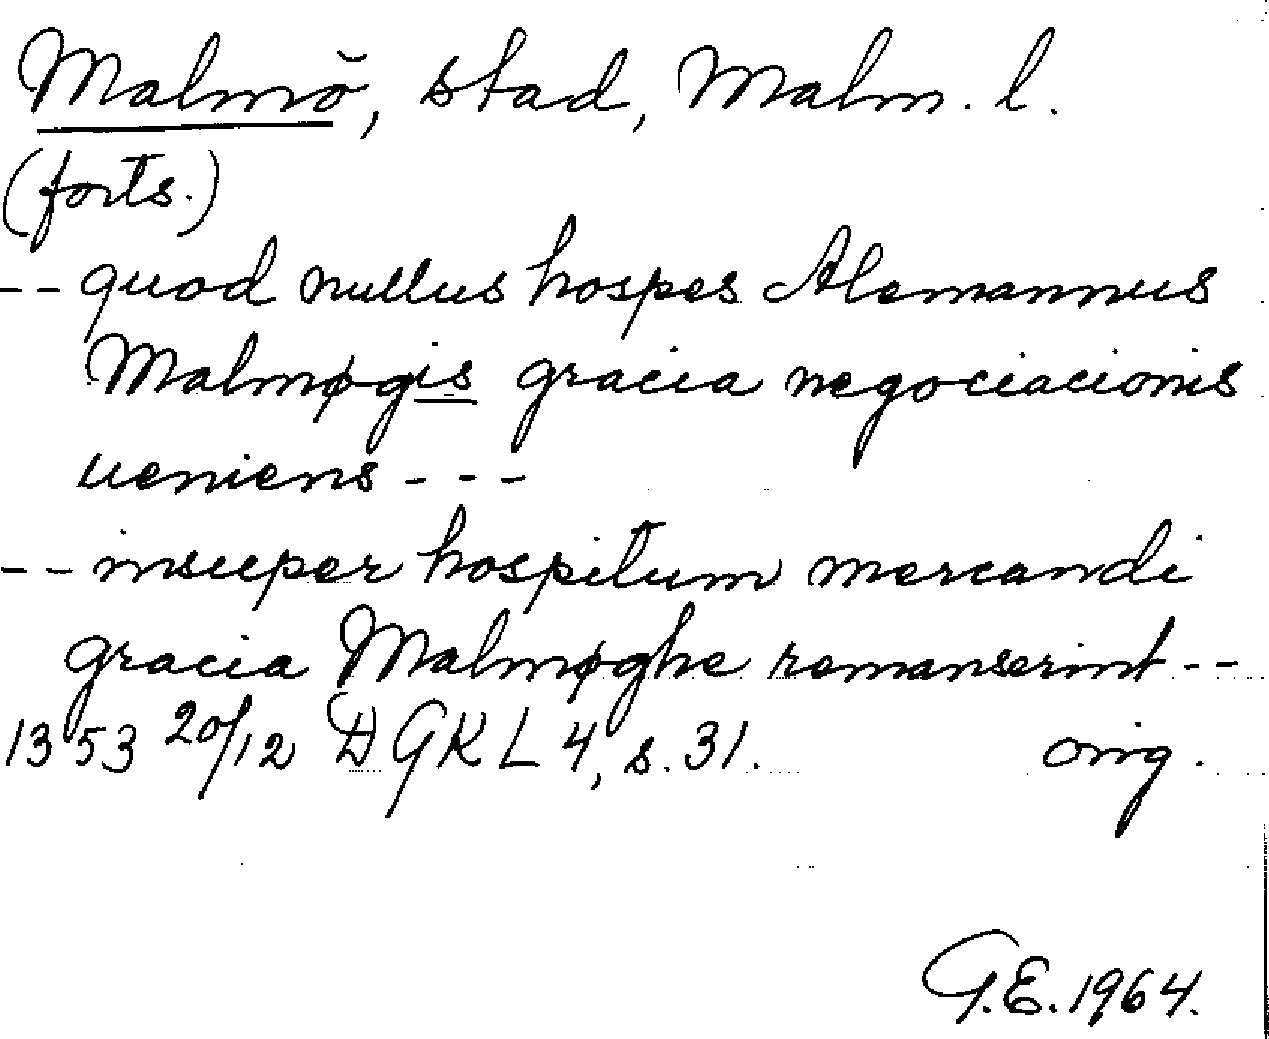 Malmö, stad, Malm. l.
(forts.)
-- quod nullus hospes Alemannus
Malmøgis gracia negociacionis
ueniens ---
-- insuper hospitum mercandi
gracia Malmøghe remanserint --
1353 20/12 DGKL 4, s. 31. orig.
G.E. 1964.